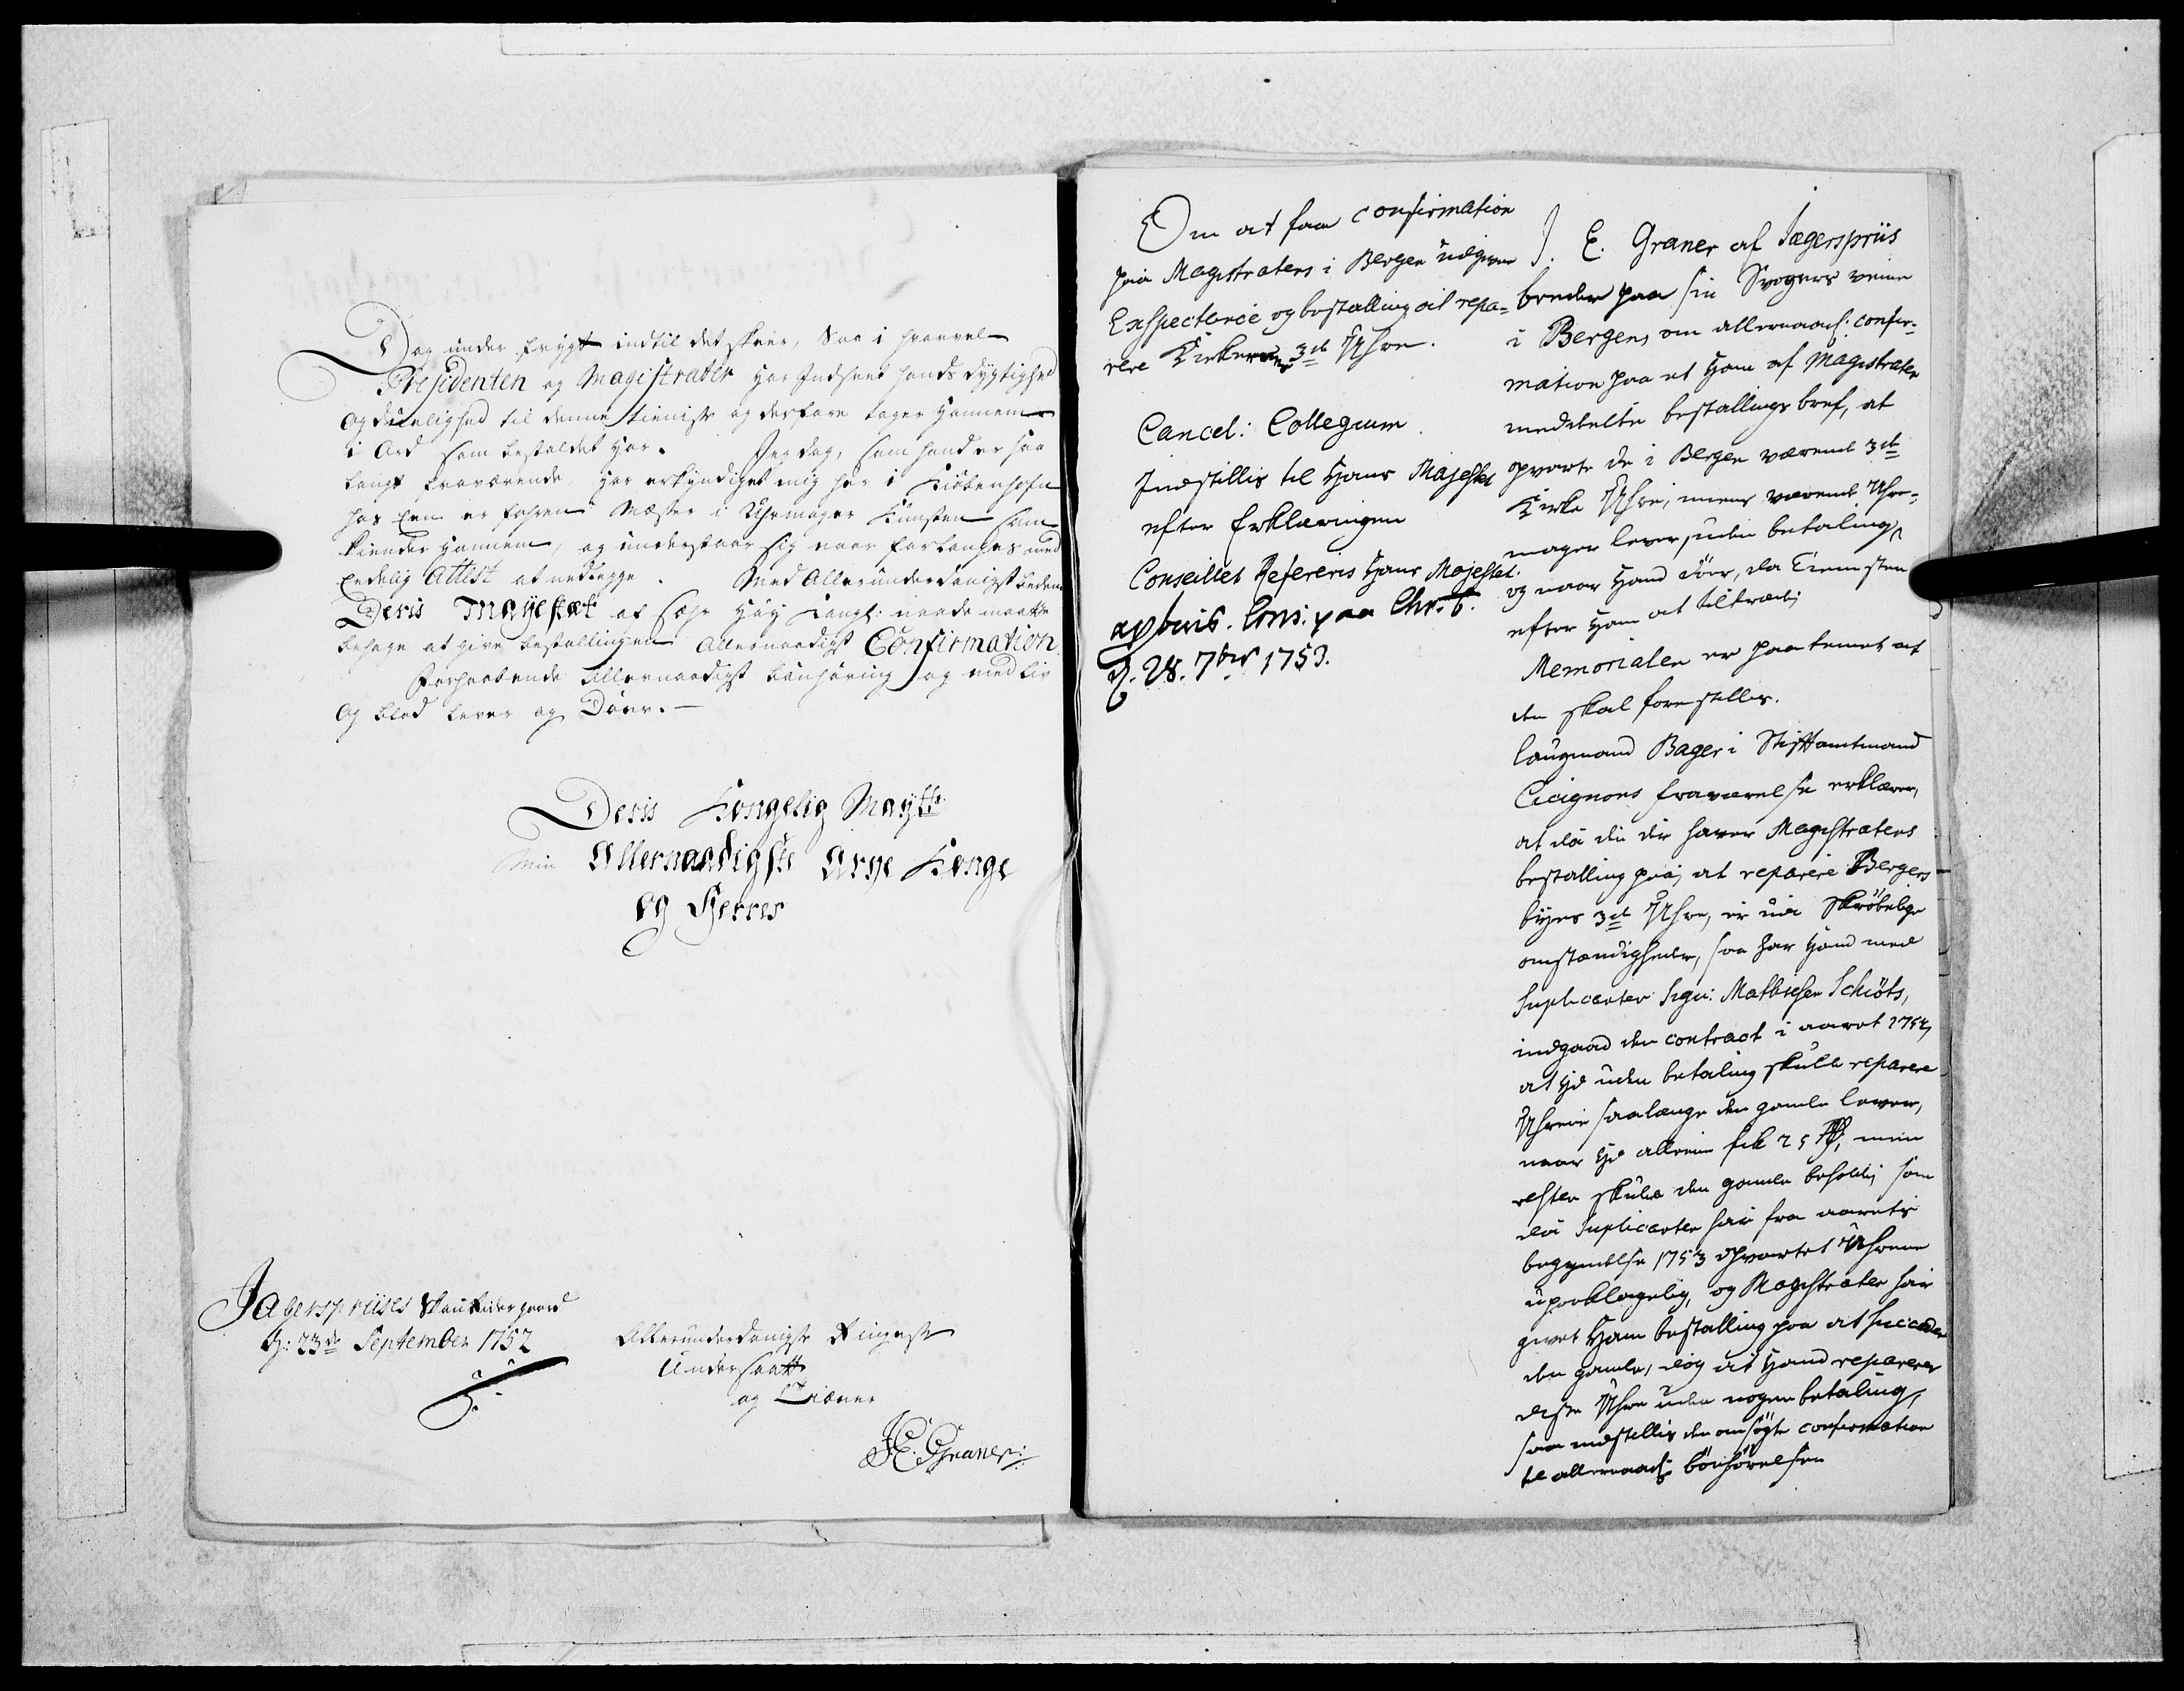 Dog under frygt indtil det skeer, Saa i hvorvel
Præsidenten og Magistraten har Indseet hands dygtighed
og duelighed til denne tieniste og derfore tager Hannem
i Ard som bestaldet har. Jeg dog, som hand er saa
langt fraværende har erkyndiget mig her i Kiøbenhafn
hos Een er fahren Mæster i Uhrmager Kunsten som
kiender Hannem, og understaar sig naar forlanges med
Eedelig Attest at nedlegge. Med Allerunderdanigst beden
Deris Mayestæt af sær høy Kongl: naade maatte
behage at give bestallingen Allernaadigst Confirmation
Forhaabende Allernaadigst bønhøring og med liv
og blod lever og Døer.
Deris Kongelig Maytt
Min Allernaadigste Arve Konge
og Herres
Jagersprüses Skou Ridergaard
d: 23de September 1752
Allerunderdanigste Ringeste
Undersaatt
og Tiæner
J. E. Graner
Om at faa confirmation
paa Magistratens i Bergen udgivne
Exspectance og bestalling at repa-
rere Kirkernes 3de Uhre.
Cancel: Collegium
Indstillis til Hans Majestet
efter Erklæringen
Conseillet Refereris Hans Majestet.
approb. Cons: paa Chr.b.
d. 28. 7br 1753.
J. E. Graner af Jægerspriis
beder paa sin Svogers veine
i Bergen, om allernaad: confir-
mation paa et Ham af Magistraten
meddeelte bestallings bref, at
opvarte de i Bergen værende 3de
Kirke Uhre, mens værende Uhr-
mager lever, uden betaling,
og naar Hand döer, da Tienesten
efter Ham at tiltræde
Memorialen er paateinet at
den skal forestilles.
Laugmand Bager i Stiftamtmand
Cicignons fraværelse erklærer,
at da den der haver Magistratens
bestalling paa, at reparere Bergens
byes 3de Uhre, er udi Skröbelige
omstændigheder, saa har Hand med
Suplicanten Sigr: Mathiesen Schiöts,
indgaaed den contract i aaret 1752,
at Hd uden betaling skulle reparere
Uhrene saalænge den gamle lever,
naar Hd alleene fik 25 rd, men
resten skulle den gamle beholde, som
da Suplicanten har fra aarets
begyndelse 1753 opvartet Uhrene
upaaklagelig, og Magistraten har
givet Ham bestalling paa at succedere
den gamle, dog at Hand reparerer
disse Uhre uden nogen betaling,
saa indstillis den ansögte confirmation
til allernaad: bönhörelsen